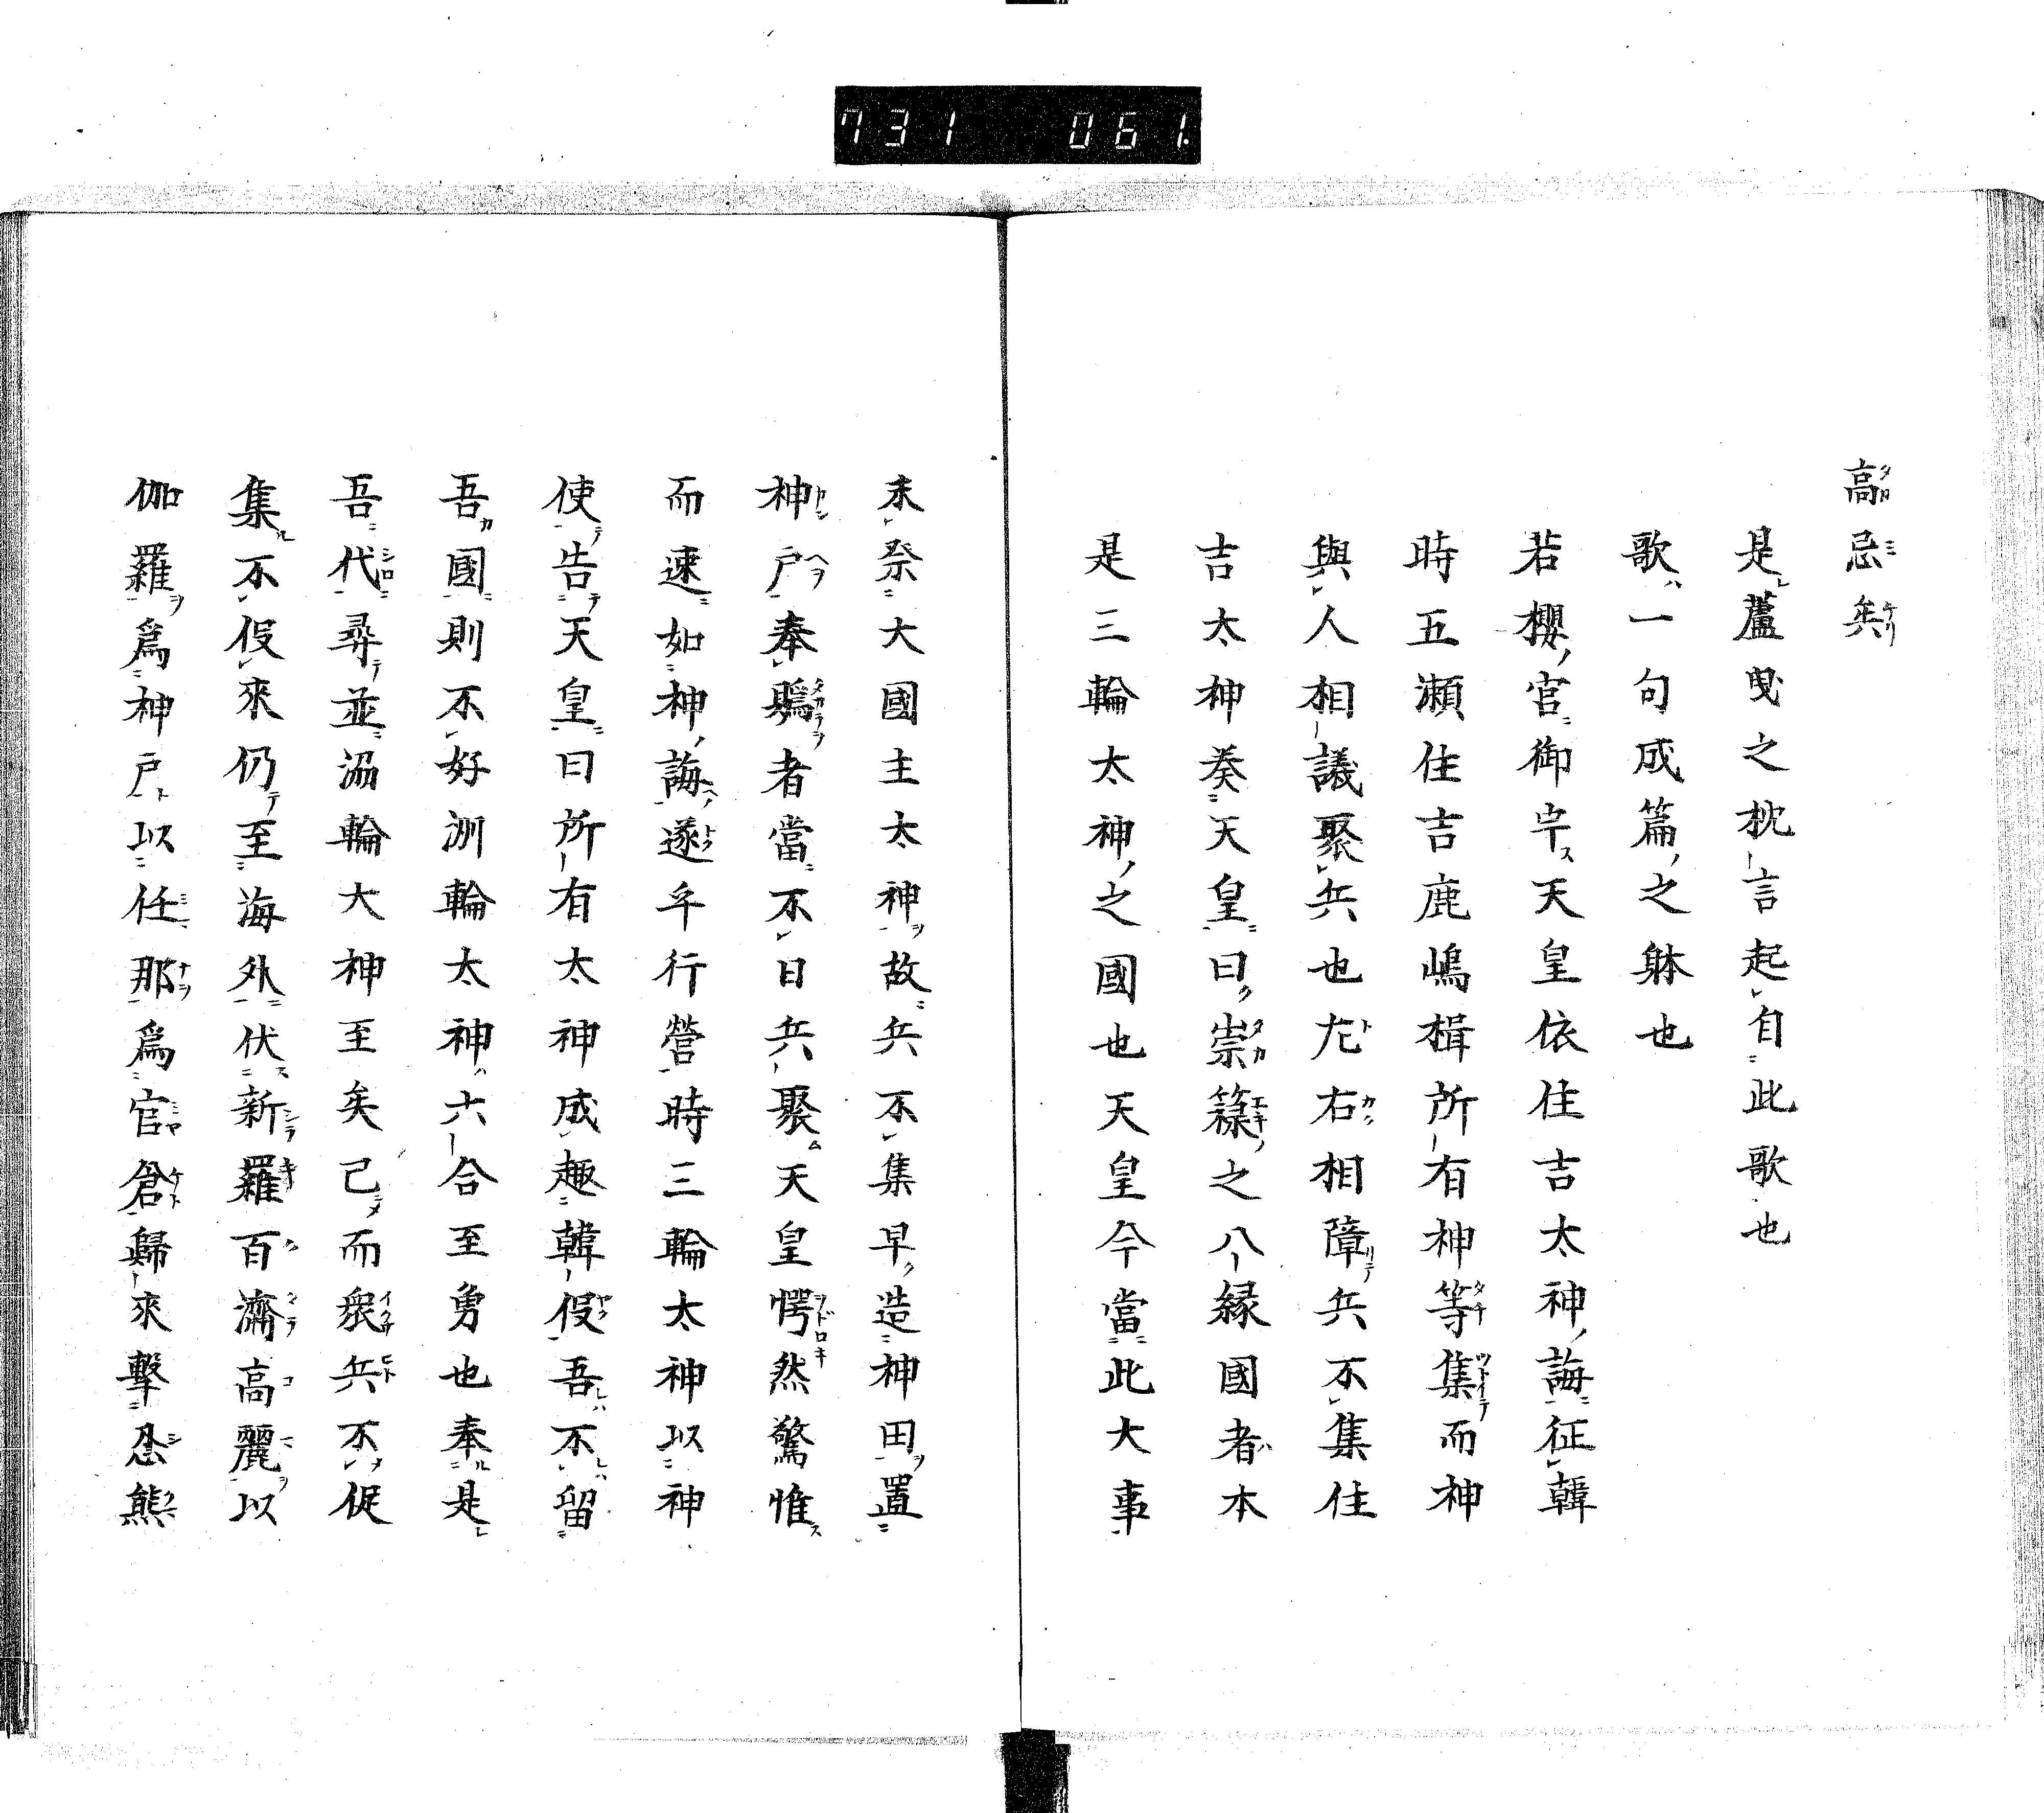 731 061.
高忌矣
是蘆曳之枕言起自此歌也
歌一句成篇之躰也
若櫻宮御宇天皇依住吉太神誨征韓
時五瀬住吉鹿嶋楫所有神等集而神
與人相議聚兵也左右相障兵不集住
吉太神奏天皇曰崇籙之八縁國者本
是三輪太神之國也天皇今當此大事
未祭大國主太神故兵不集早造神田置
神戸奉者當不日兵聚天皇愕然驚惟
而速如神誨遂乎行營時三輪太神以神
使告天皇曰所有太神成趣韓伇吾不留
吾國則不好洲輪太神六合至勇也奉是
吾代尋並沼輪大神至矣已而衆兵不促
集不伇來仍至海外伏新羅百濟高麗以
伽羅爲神戸以任那爲官倉歸來擊忍熊